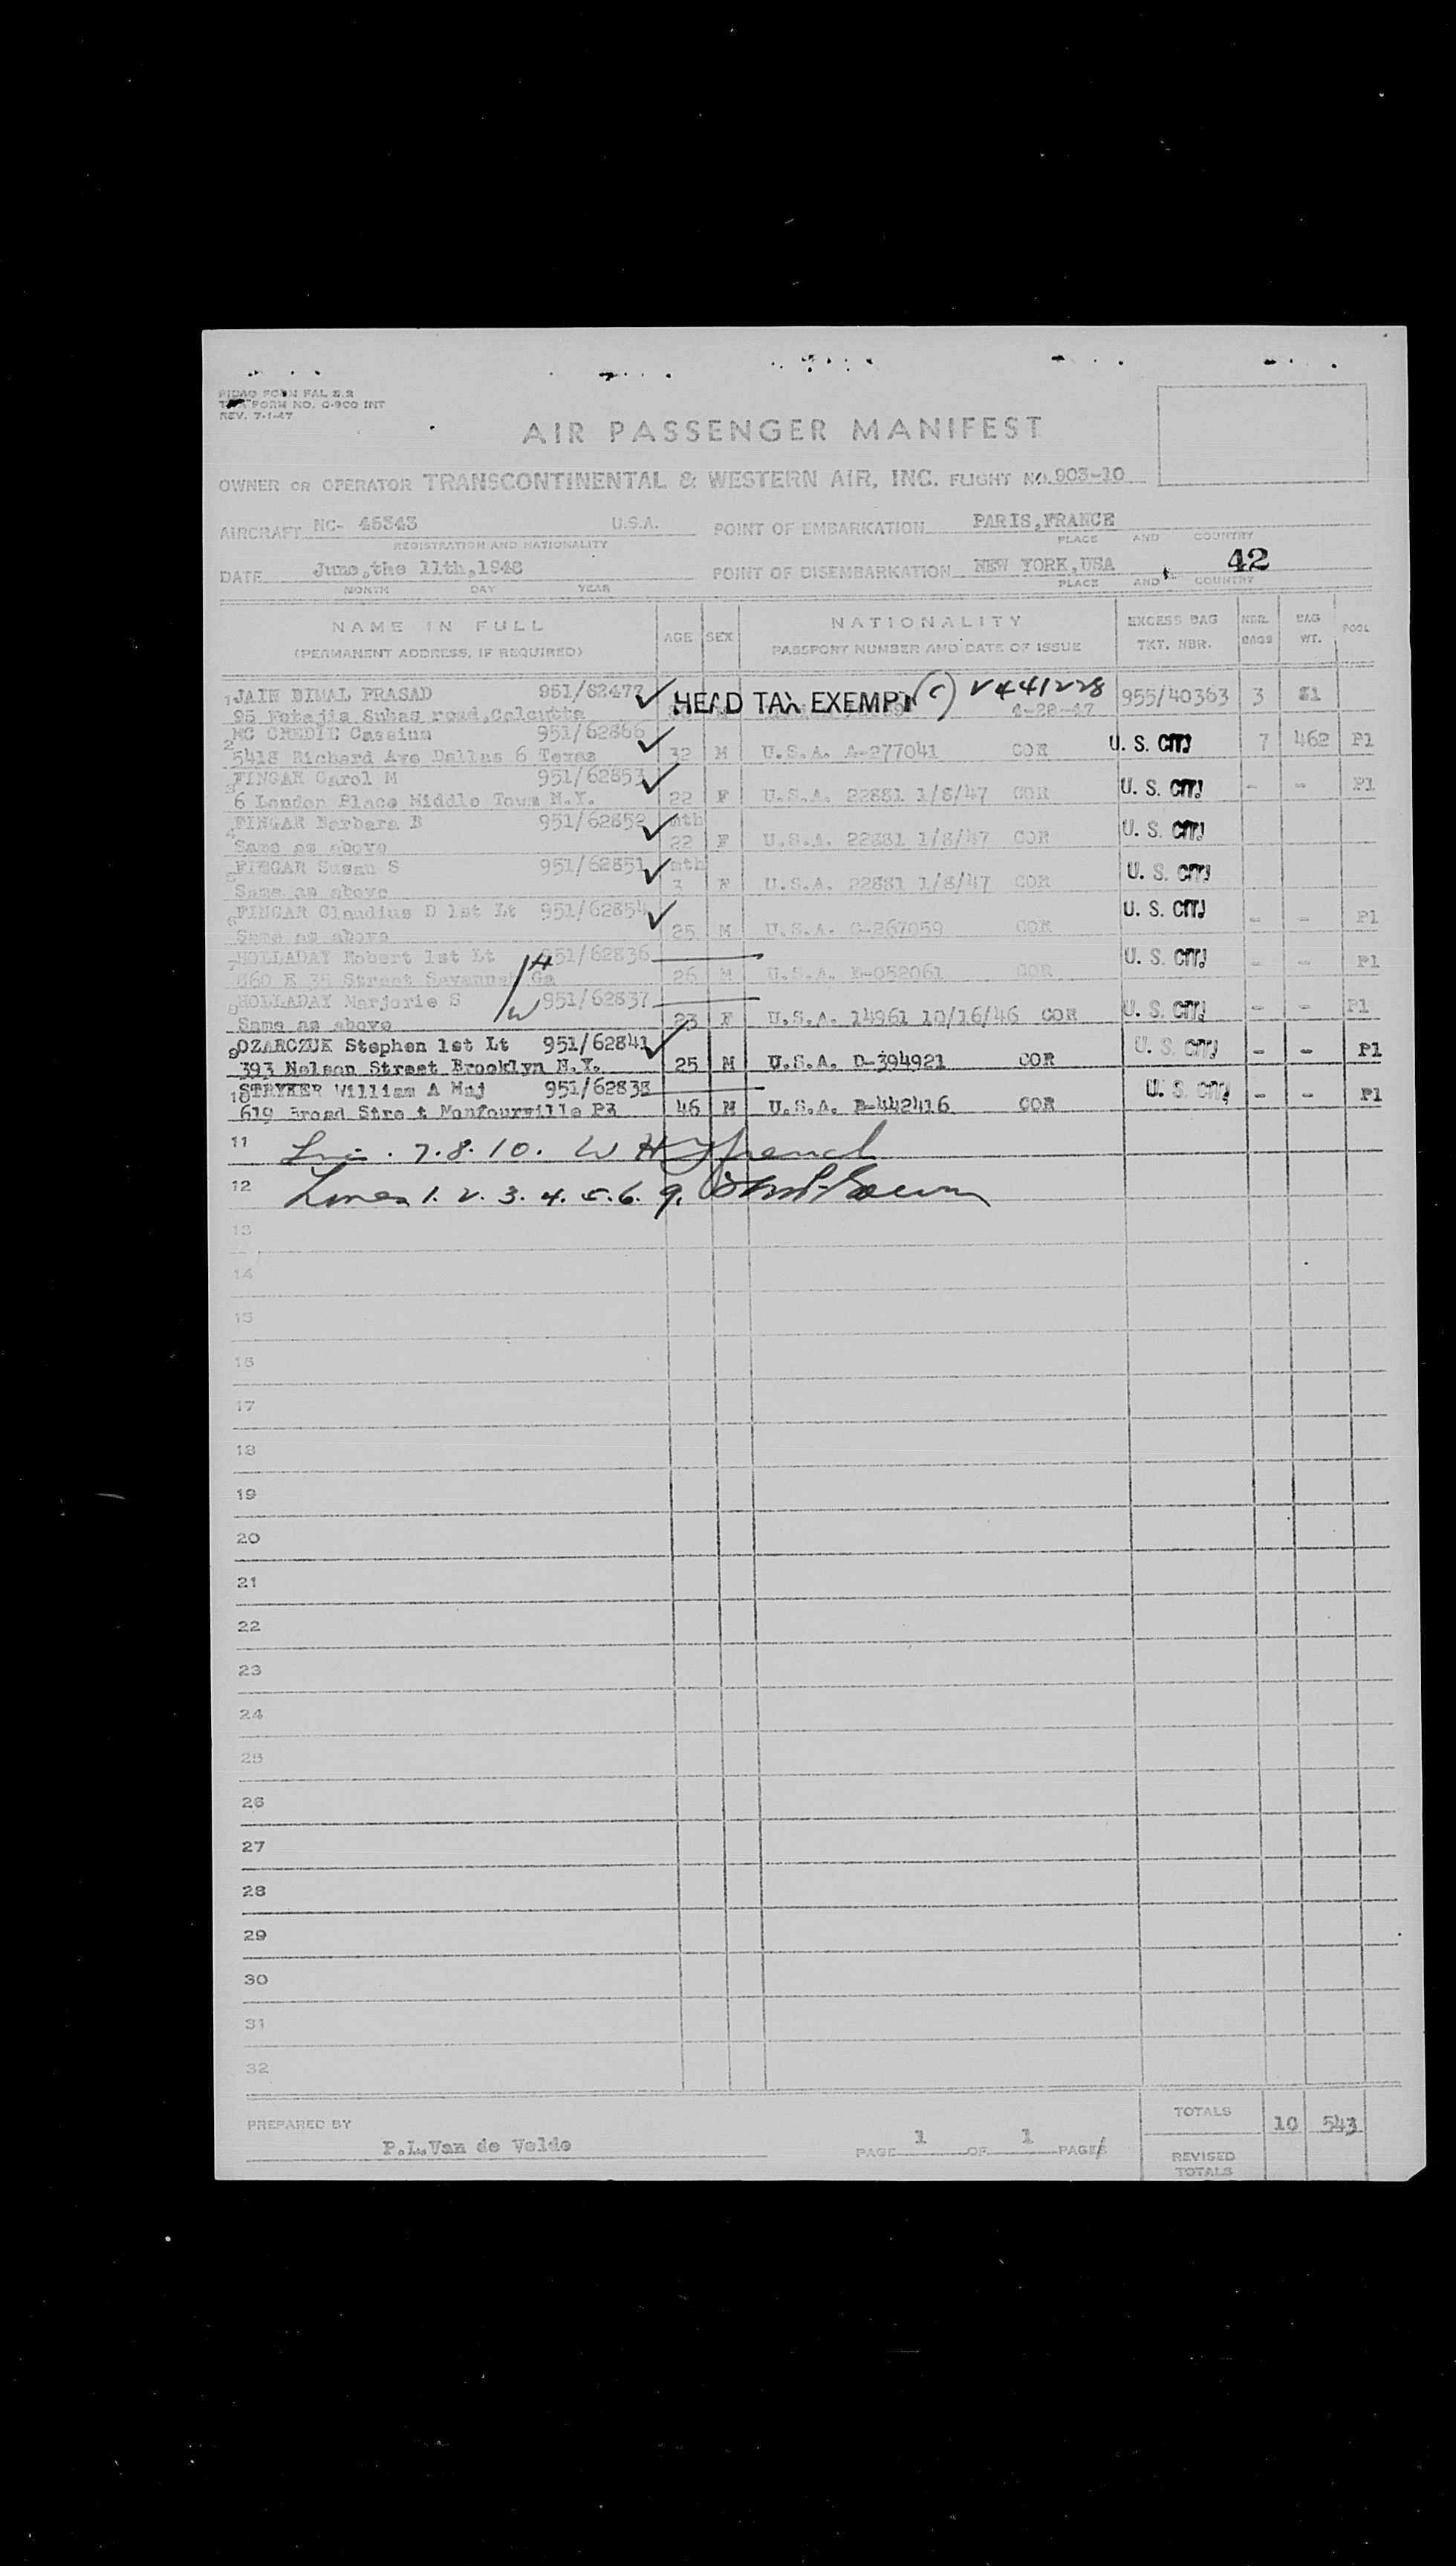 PICAO FORM FAL 2.2
TWA FORM NO. O-900 INT
REV. 7-1-47
AIR PASSENGER MANIFEST
OWNER OR OPERATOR TRANSCONTINENTAL & WESTERN AIR, INC. FLIGHT NO. 903-10
AIRCRAFT NC- 45343 U.S.A. POINT OF EMBARKATION PARIS,FRANCE
REGISTRATION AND NATIONALITY PLACE AND COUNTRY
42
DATE June,the 11th,1948 POINT OF DISEMBARKATION NEW YORK,USA
MONTH DAY YEAR PLACE AND COUNTRY
NAME IN FULL AGE SEX NATIONALITY EXCESS BAG NBR. BAG POOL
(PERMANENT ADDRESS, IF REQUIRED) PASSPORT NUMBER AND DATE OF ISSUE TKT. NBR. BAGS WT.
1 JAIN BIMAL PRASAD 951/62477 HEAD TAX EXEMPT (C) V441228 955/40363 3 81
95 Netajia Subas road,Calcutta 4-28-47
2 MC CREDIE Cassium 951/62866 U. S. CITJ 7 462 P1
5418 Richard Ave Dallas 6 Texas 32 M U.S.A. A-277041 COR
3 FINGAR Carol M 951/62853 U. S. CITJ - - P1
6 London Place Middle Town N.Y. 22 F U.S.A. 22881 1/8/47 COR
4 FINGAR Barbara B 951/62852 mth U. S. CITJ
Same as above 22 F U.S.A. 22881 1/8/47 COR
5 FINGAR Susan S 951/62851 mth U. S. CITJ
Same as above 3 F U.S.A. 22881 1/8/47 COR
6 FINGAR Claudius D 1st Lt 951/62854 U. S. CITJ - - P1
Same as above 25 M U.S.A. C-267059 COR
7 HOLLADAY Robert 1st Lt 951/62836 U. S. CITJ - - P1
H
860 E 35 Street Savannah Ga 26 M U.S.A. E-052061 COR
8 HOLLADAY Marjorie S 951/62837 U. S. CITJ - - P1
W
Same as above 23 F U.S.A. 14961 10/16/46 COR
9 OZARCZUK Stephen 1st Lt 951/62841 U. S. CITJ - - P1
393 Nelson Street Brooklyn N.Y. 25 M U.S.A. D-394921 COR
10 STRYKER William A Maj 951/62838 U. S. CITJ - - P1
619 Broad Stre t 46 M U.S.A. B-442416 COR
11 7.8.10. W H
12 Lines 1. 2. 3. 4. 5. 6. 9.
13
14
15
16
17
18
19
20
21
22
23
24
25
26
27
28
29
30
31
32
PREPARED BY TOTALS 10 543
P.L.Van de Velde PAGE 1 OF 1 PAGES
REVISED
TOTALS